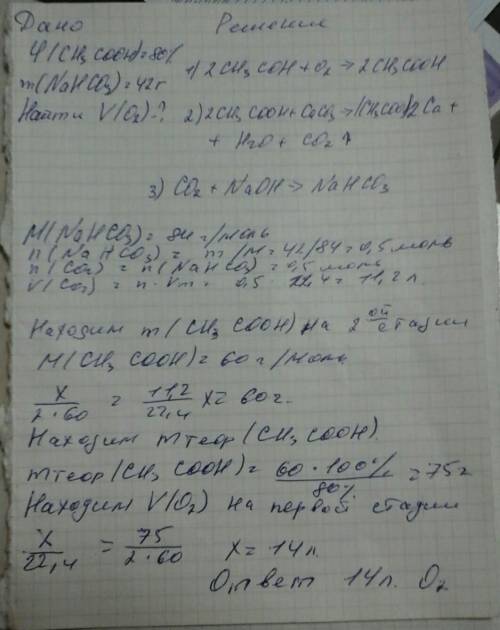 Дано Решение
φ(CH3COOH)=80%
m(NaHCO3)=42г 1) 2CH3COH+O2→2CH3COOH
Найти V(O2)-? 2) 2CH3COOH+CaCO3→(CH3COO)2Ca+
+ H2O + CO2↑
3) CO2 + NaOH → NaHCO3
M(NaHCO3)= 84 г/моль
n(NaHCO3) = m/M=42/84=0,5 моль
n(CO2) = n(NaHCO3)=0,5 моль
V(CO2) = n·Vm = 0,5·22,4=11,2 л.
Находим m(CH3COOH) на 2ой стадии
M(CH3COOH)=60 г/моль
x/2·60 = 11,2/22,4 x=60г.
Находим mтеор(CH3COOH).
mтеор(CH3COOH)= 60·100%/80% =75г
Находим V(O2) на первой стадии
x/22,4 = 75/2·60 x=14л.
Ответ 14л. O2